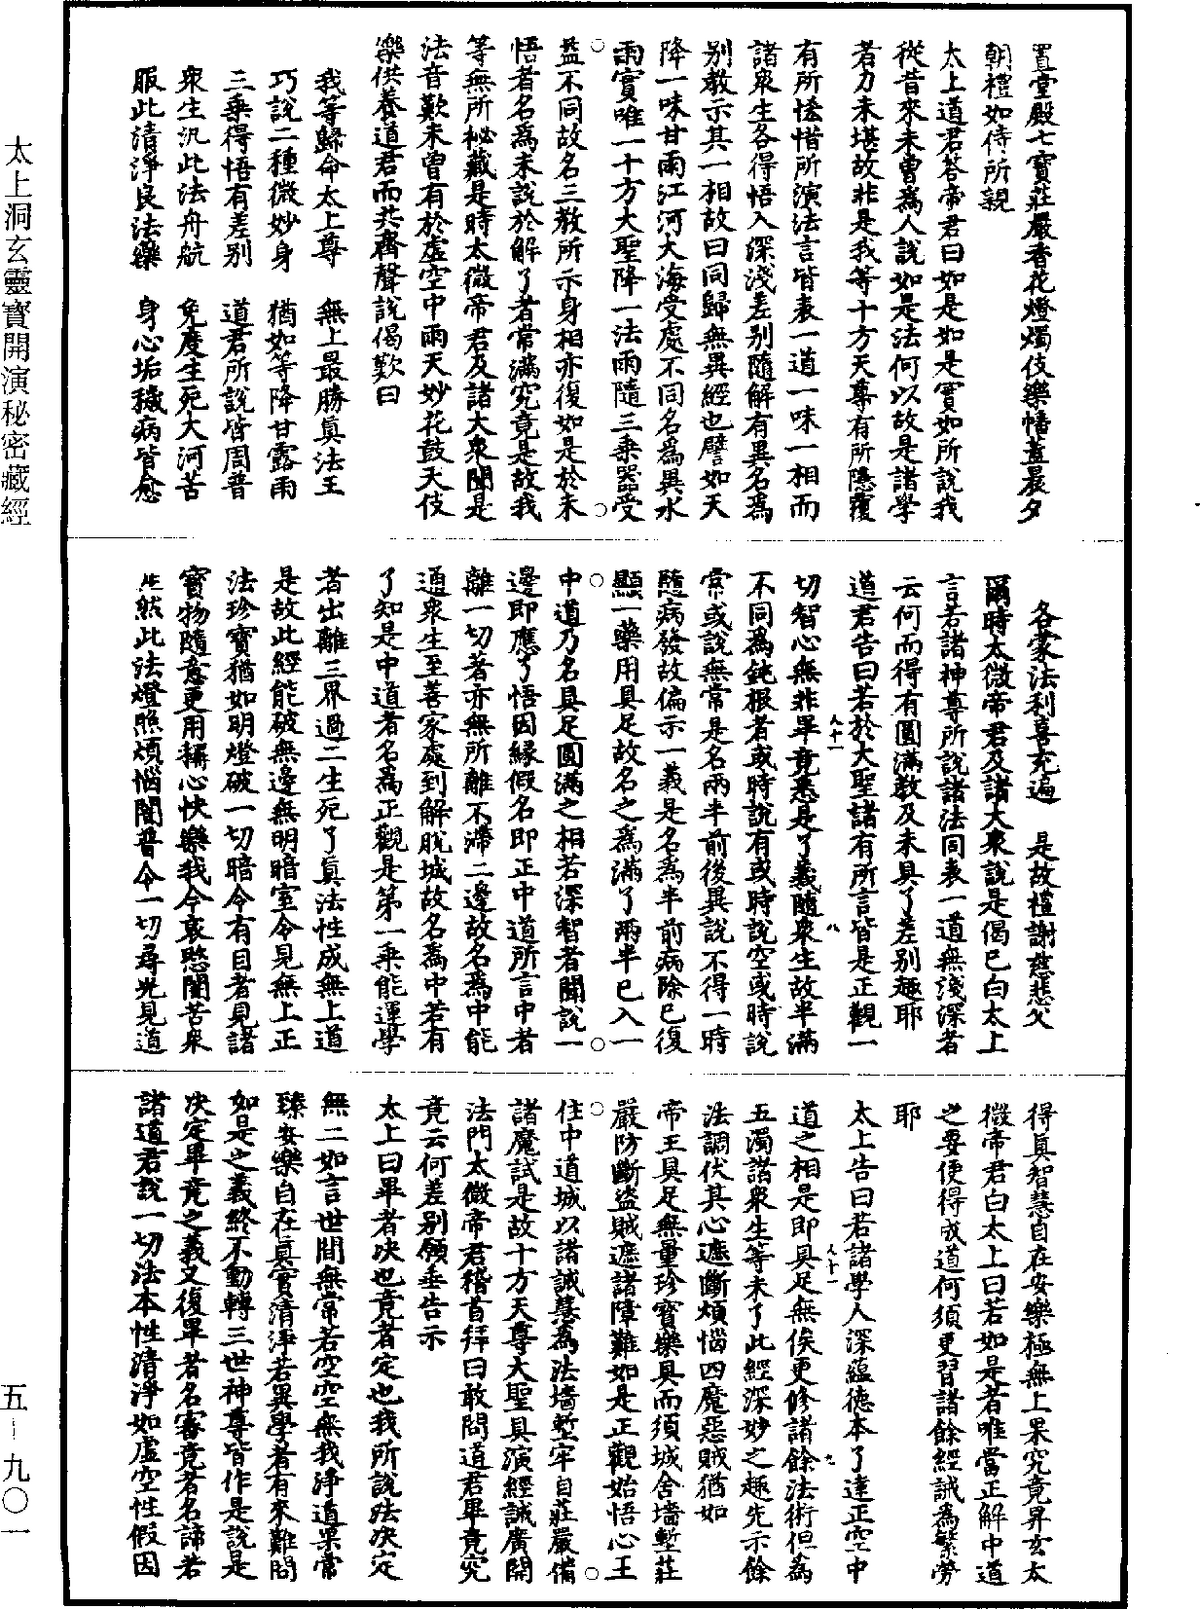 置堂殿七寶莊嚴香花燈燭伎樂幡蓋晨夕
朝禮如侍所親
太上道君答帝君曰如是如是實如所說我
從昔來未曾為人說如是法何以故是諸學
者力未堪故非是我等十方天尊有所隱覆
有所恡惜所演法言皆表一道一味一相而
諸衆生各得悟入深淺差别隨解有異名為
别教示其一相故曰同歸無異經也譬如天
降一味甘雨江河大海受處不同名為異水
雨實唯一十方大聖降一法雨隨三乗器受
益不同故名三教所示身相亦復如是於未
悟者名為未說於解了者常滿究竟是故我
等無所祕藏是時太微帝君及諸大衆聞是
法音歎未曾有於虛空中雨天妙花鼓天伎
樂供養道君而共齊聲說偈歎曰
我等歸命太上尊　無上最勝真法王
巧說二種微妙身　猶如等降甘露雨
三乗得悟有差别　道君所說皆周普
衆生汎此法舟航　免度生死大河苦
服此清淨良法藥　身心垢穢病皆愈
各蒙法利喜充遍　是故稽謝慈悲父
爾時太微帝君及諸大衆說是偈已白太上
言若諸神尊所說諸法同表一道無淺深者
云何而得有圓滿教及未具了差别趣耶
道君告曰若於大聖諸有所言皆是正觀一
切智心無非畢竟悉是了義隨衆生故半滿
不同為鈍根者或時說有或時說空或時說
常或說無常是名兩半前後異說不得一時
隨病發故偏示一義是名為半前病除已復
顯一藥用具足故名之為滿了兩半已入一
中道乃名具足圓滿之相若深智者聞說一
邊即應了悟因緣假名即正中道所言中者
離一切著亦無所離不滯二邊故名為中能
通衆生至善家處到解脫城故名為中若有
了知是中道者名為正觀是第一乗能運學
者出離三界過二生死了真法性成無上道
是故此經能破無邊無明暗室令見無上正
法珍寶猶如明燈破一切暗令有目者見諸
寶物隨意更用稱心快樂我今哀愍闇苦衆
生然此法燈照煩惱闇普令一切尋光見道
得真智慧自在安樂極無上果究竟昇玄太
微帝君白太上曰若如是者唯當正解中道
之要便得成道何須更習諸餘經誡為繁勞
耶
太上告曰若諸學人深蘊德本了達正空中
道之相是即具足無俟更修諸餘法術但為
五濁諸衆生等未了此經深妙之趣先示餘
法調伏其心遮斷煩惱四魔惡賊猶如
帝王具足無量珍寶樂具而須城舍墻塹莊
嚴防斷盜賊遮諸障難如是正觀始悟心王
住中道城以諸誡慧為法墻塹牢自莊嚴備
諸魔試是故十方天尊大聖具演經誡廣開
法門太微帝君稽首拜曰敢問道君畢竟究
竟云何差别領垂告示
太上曰畢者决也竟者定也我所說法决定
無二如言世間無常若空空無我淨道果常
臻安樂自在真實清淨若異學者有來難問
如是之義終不動轉三世神尊皆作是說是
决定畢竟之義又復畢者名審竟者名諦若
諸道君說一切法本性清淨如虛空性假因
太上洞玄靈寶開演秘密藏經
五—九〇一